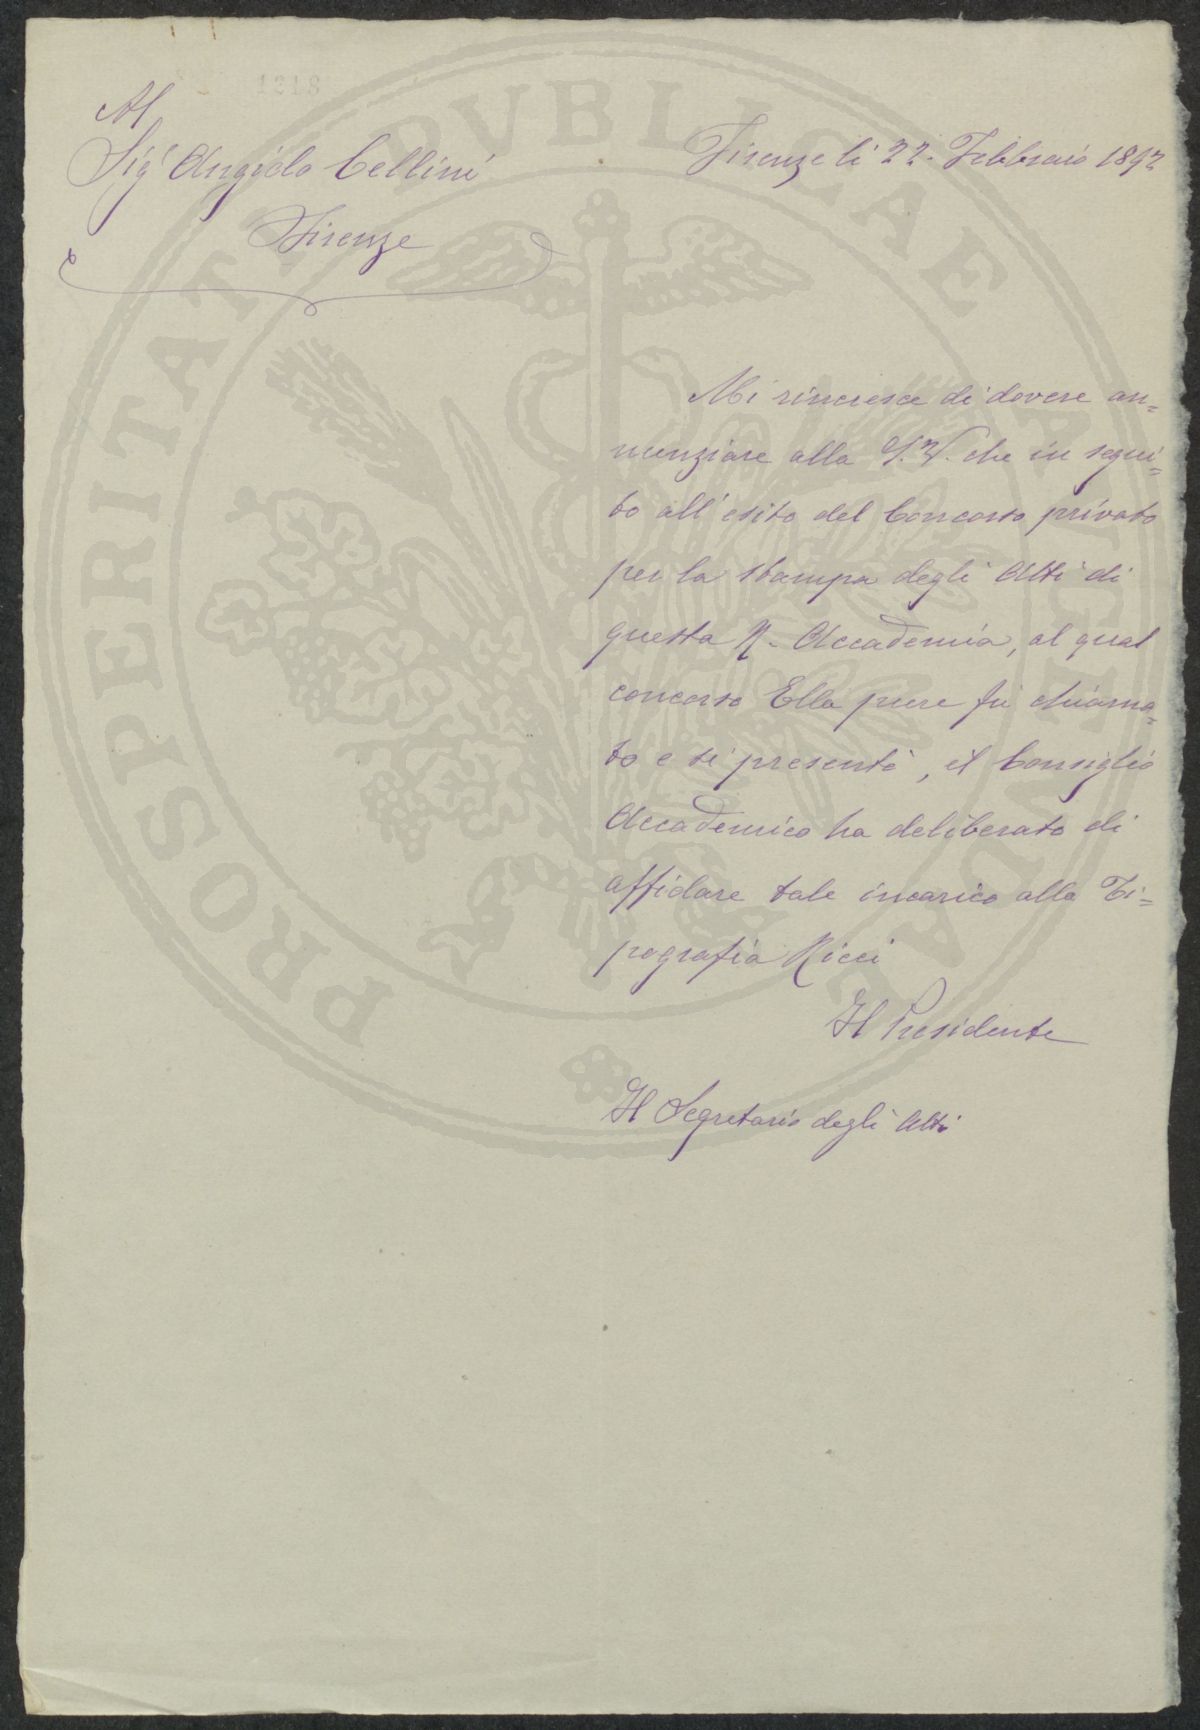 1218
Al
Sigr Angiolo Cellini
Firenze
Firenze li 22. Febbraio 1892
Mi rincresce di dovere an=
nunziare alla S. V. che in segui=
to all'esito del Concorso privato
per la stampa degli Atti di
questa R. Accademia, al qual
concorso Ella pure fu chiama=
to e si presentò, il Consiglio
Accademico ha deliberato di
affidare tale incarico alla Ti=
pografia Ricci
Il Presidente
Il Segretario degli Atti
PROSPERITATI PVBLICAE AVGENDAE